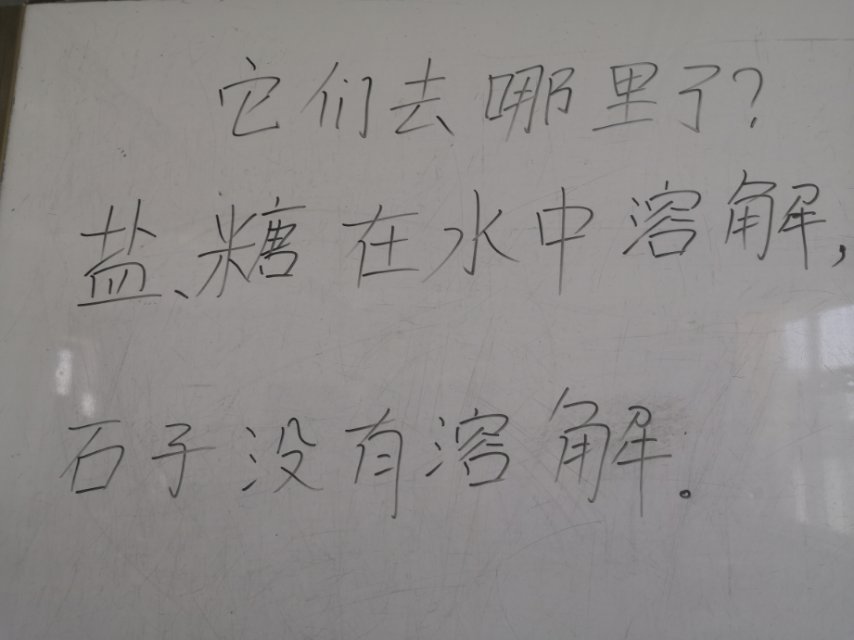 它们去哪里了?
盐、糖在水中溶解,
石子没有溶解。